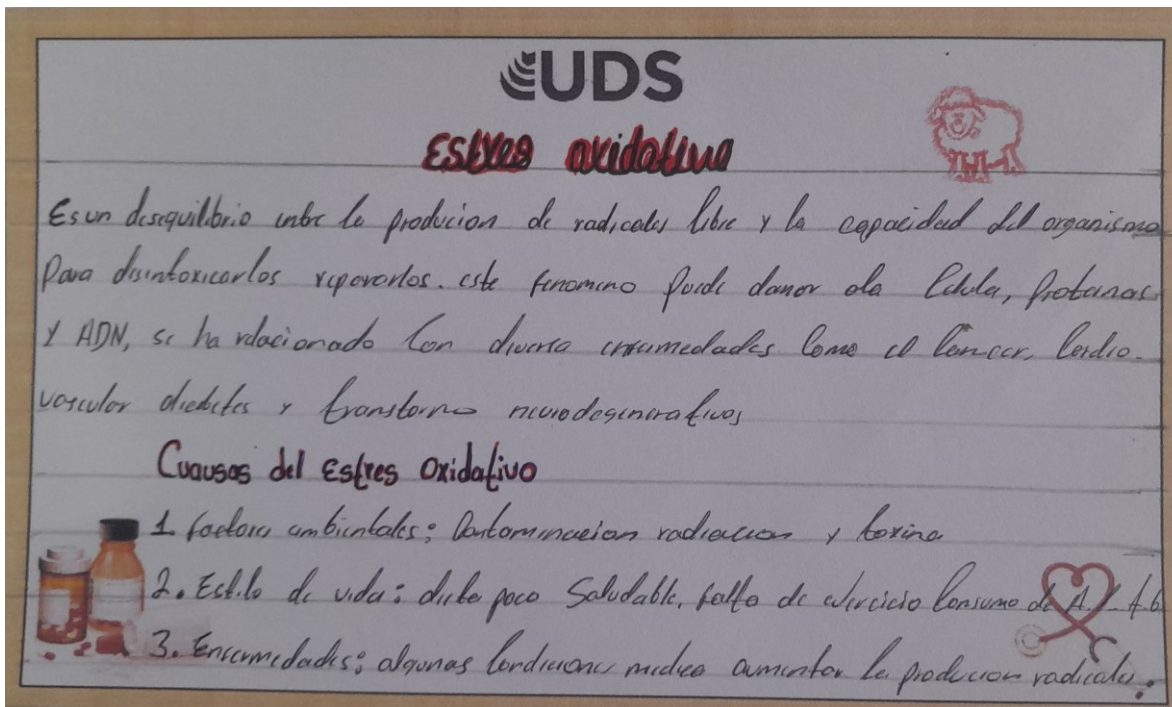 UDS
Estres oxidativo
Es un desequilibrio entre la producion de radicales libre y la capacidad del organismo
Para desintoxicarlos repararlos. este fenomeno puede danar a la Celula, Proteinas
Y ADN, se ha relacionado Con diversa enfermedades Como el Cancer, Cardio-
vascular diabetes y transtorno neurodegenerativos
Cuausas del Estres Oxidativo
1. factores ambientales: Contaminacion radiacion y toxina
2. Estilo de vida: dieta poco Saludable, falta de ejercicio Consumo de A. Y
3. Enfermedades: algunas Condiciones medica aumentar la producion radicales.